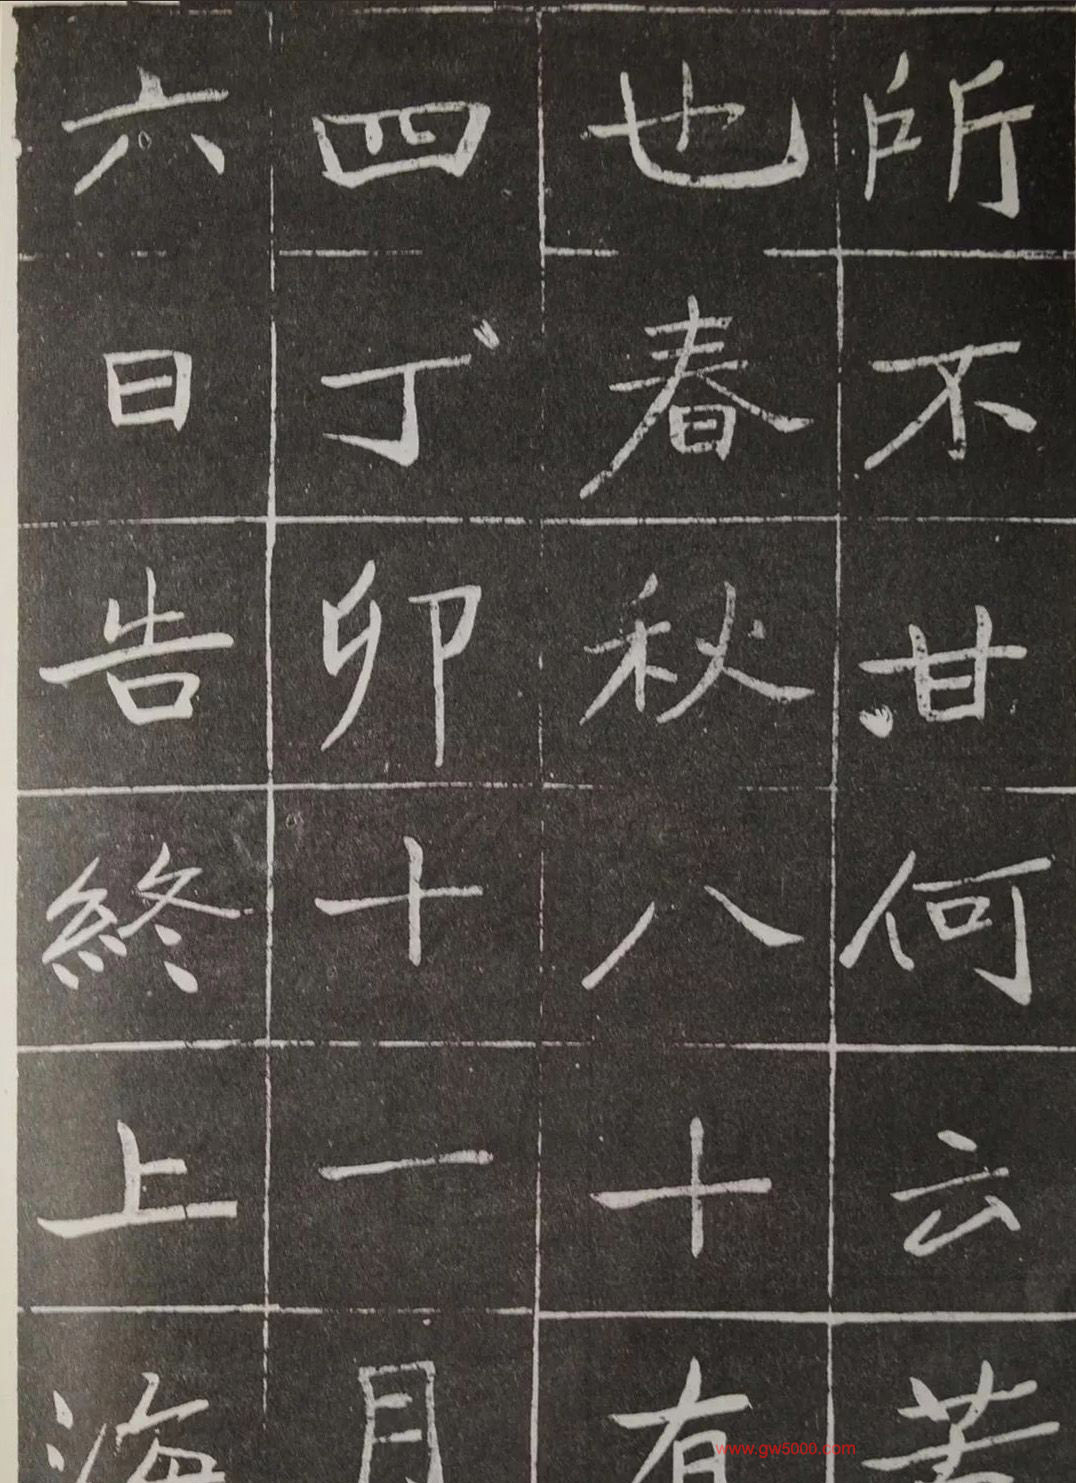 所不甘何云苦
也春秋八十有
四丁卯十一月
六日告終上海
www.gw5000.com